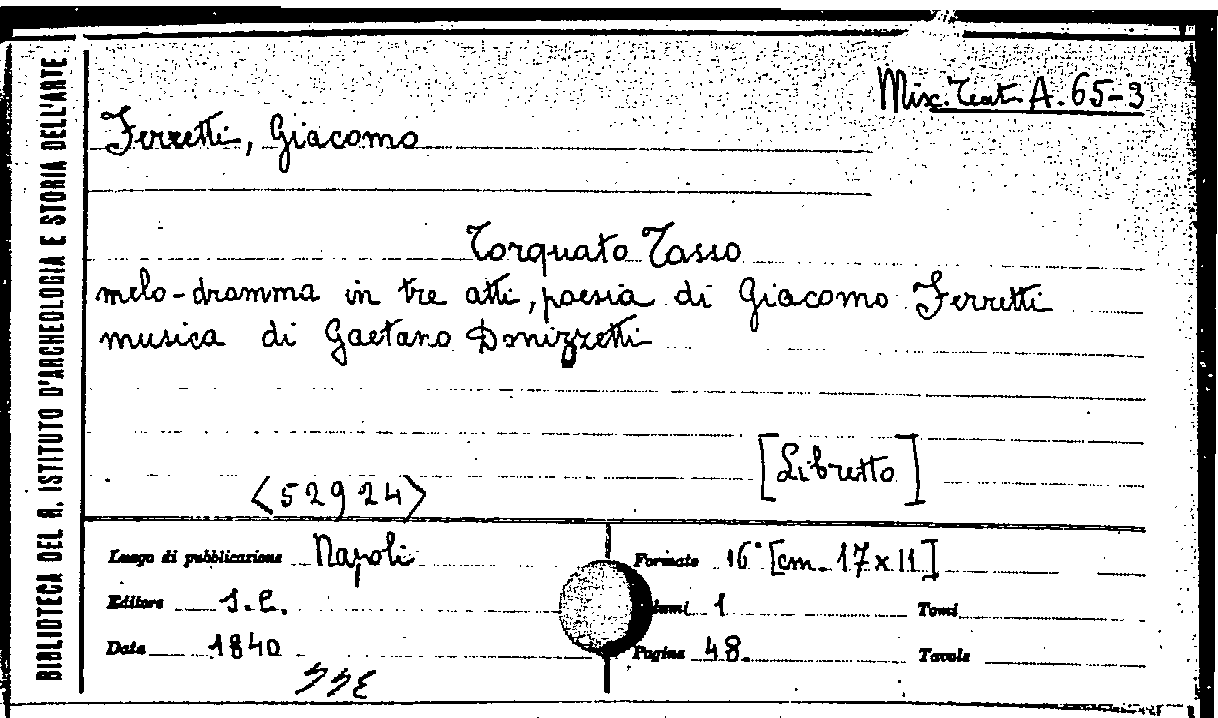 BIBLIOTECA DEL R. ISTITUTO D'ARCHEOLOGIA E STORIA DELL'ARTE
Misc. Teat. A. 65-3
Ferretti, Giacomo
Torquato Tasso
melo-dramma in tre atti, poesia di Giacomo Ferretti
musica di Gaetano Donizzetti
[Libretto]
<52924>
Luogo di pubblicazione Napoli
Formato 16° [cm. 17x11]
Editore s.e.
lumi 1
Tomi
Data 1840
Pagine 48.
Tavole